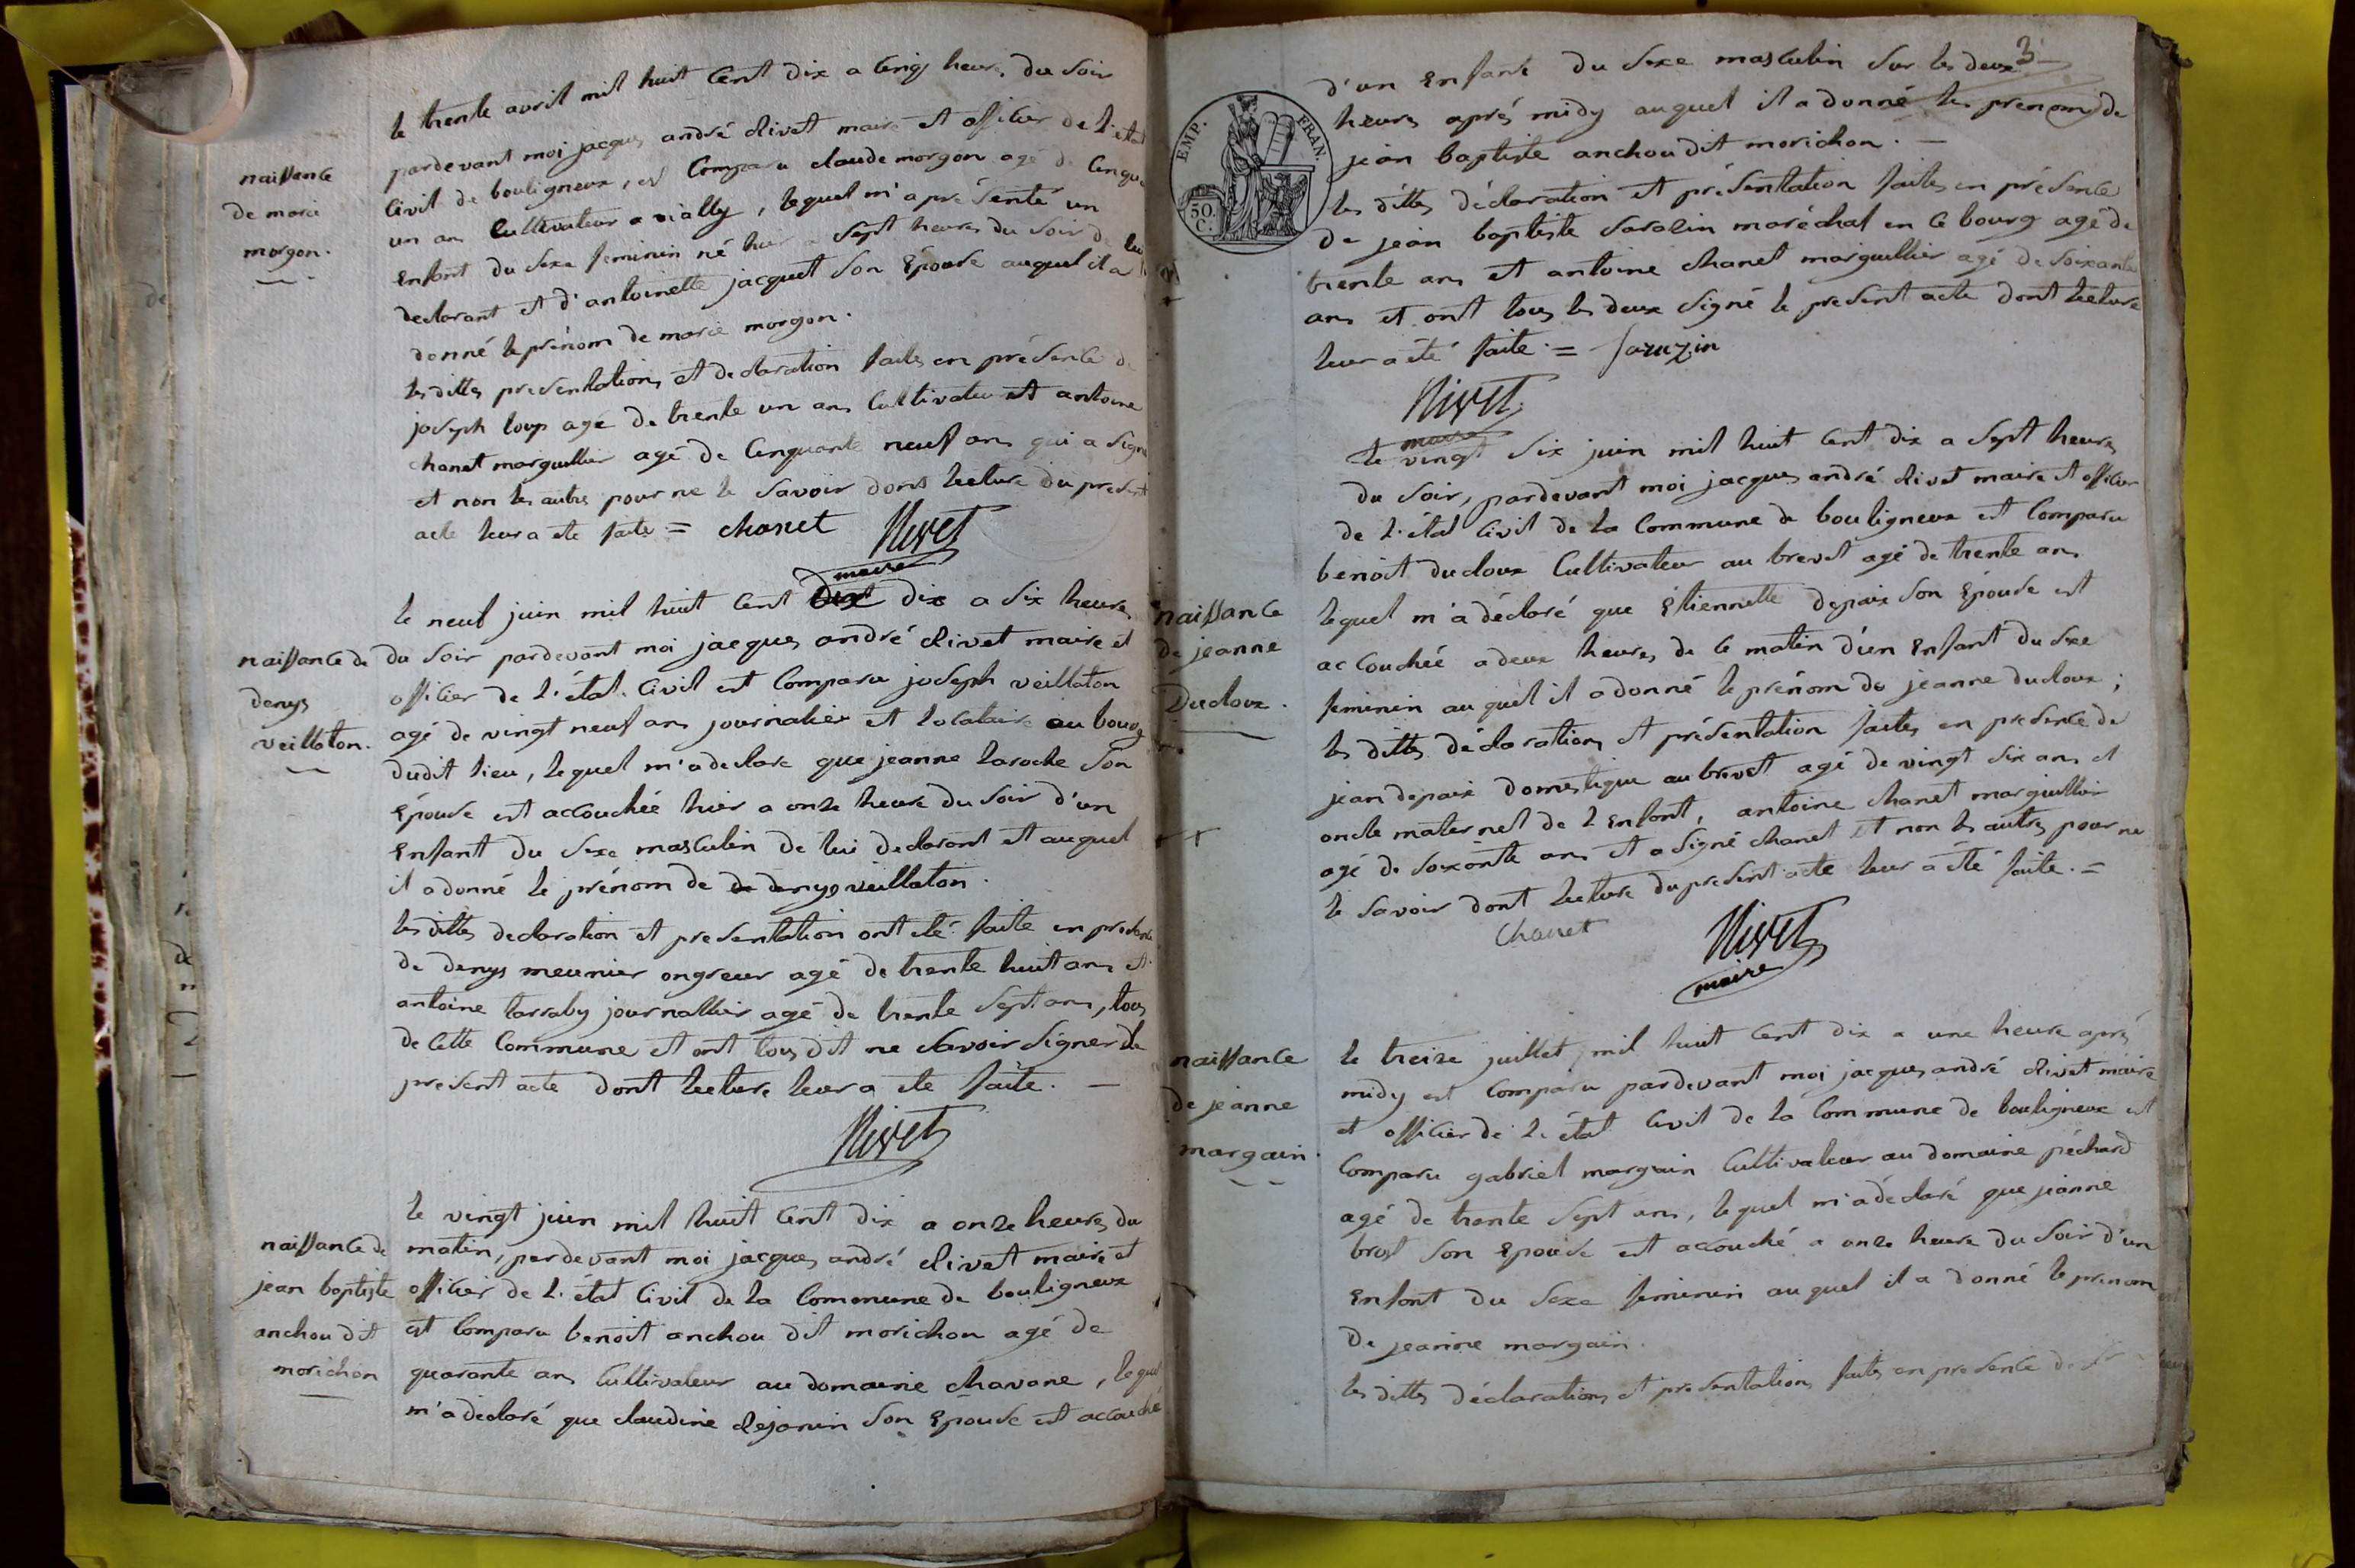 naissance
de marie
morgon.
le trente avril mil huit cent dix a cinq heures du soir
pardevant moi jacques andré Nivet maire et officier de l'état
civil de bouligneux, est comparu claude morgon agé de cinquante
un ans Cultivateur a vially, lequel m'a présenté un
Enfant du sexe feminin né hier a sept heures du soir de lui
declarant et d'antoinette jacquet son Epouse auquel il a
donné le prénom de marie morgon.
lesdittes presentations et declaration faites en présence de
joseph loup agé de trente un ans Cultivateur et antoine
chanet marguillier agé de cinquante neuf ans qui a signé
et non les autres pour ne le savoir dont lecture du present
acte leur a été faite = chanet Nivet
maire
naissance de
denys
veillaton.
le neuf juin mil huit cent dix a six heures
du soir pardevant moi jacques andré Nivet maire et
officier de l'état civil est comparu joseph veillaton
agé de vingt neuf ans journalier et locataire au bourg
dudit lieu, lequel m'a declaré que jeanne laroche son
Epouse est accouchée hier a onze heure du soir d'un
Enfant du sexe masculin de lui declarant et auquel
il a donné le prénom de de denys veillaton.
les dittes declaration et presentation ont été faite en présence
de denys meunier ongreur agé de trente huit ans et
antoine tarraby journallier agé de trente sept ans, tous
de cette Commune et ont tous dit ne savoir signer le
present acte dont lecture leur a été faite. —
Nivet
naissance de
jean baptiste
anchou dit
morichon
le vingt juin mil huit cent dix a onze heures du
matin, pardevant moi jacques andré Nivet maire et
officier de l'état civil de la Commune de bouligneux
est comparu benoit anchou dit morichon agé de
quarante ans Cultivateur au domaine chavane, lequel
m'a declaré que claudine dejanin son Epouse est accouché
3
d'un Enfant du sexe masculin sur les deux
heures aprés midy auquel il a donné les prenoms de
jean baptiste anchou dit morichon. —
EMP. FRAN.
50. C.
les dittes déclaration et présentation faites en présence
de jean baptiste sarazin maréchal en ce bourg agé de
trente ans et antoine chanet marguillier agé de soixante
ans et ont tous les deux signé le present acte dont lecture
leur a été faite. = Sarazin
Nivet
maire
naissance
de jeanne
Ducloux.
le vingt six juin mil huit cent dix a sept heures
du soir, pardevant moi jacques andré Nivet maire et officier
de l'état civil de la Commune de bouligneux est comparu
benoit ducloux Cultivateur au brevet agé de trente ans
lequel m'a déclaré que Etiennette depaix son Epouse est
accouchée a deux heures de ce matin d'un Enfant du sexe
feminin auquel il a donné le prénom de jeanne ducloux ;
les dittes déclarations et présentation faites en presence de
jean depaix domestique au brevet agé de vingt six ans et
oncle maternel de l'Enfant, antoine chanet marguillier
agé de soixante ans et a signé chanet et non les autres pour ne
le savoir dont lecture du present acte leur a été faite. =
Chanet
Nivet
maire
naissance
de jeanne
margain.
le treize juillet mil huit cent dix a une heure aprés
midy est comparu pardevant moi jacques andré Nivet maire
et officier de l'état civil de la Commune de bouligneux est
comparu gabriel margain Cultivateur au domaine péchard
agé de trente sept ans, lequel m'a déclaré que jeanne
brost son Epouse est accouché a onze heure du soir d'un
Enfant du sexe feminin auquel il a donné le prenom
de jeanne margain.
les dittes déclarations et presentations faites en presence de